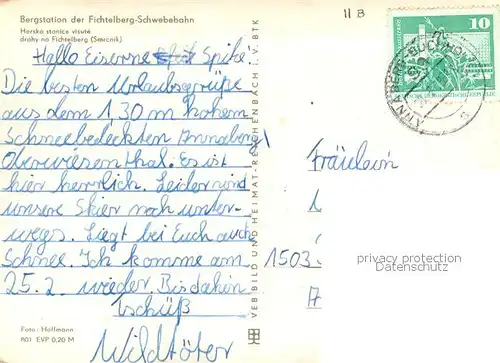 Bergstation der Fichtelberg-Schwebebahn
Horská stanice visuté
dráhy na Fichtelberg (Smrcnik)
11 B
10
ANNABERG-BUCHHOLZ
DEUTSCHE DEMOKRATISCHE REPUBLIK
Hallo Eiserne Spike!
Die besten Urlaubsgrüße
aus dem 1,30 m hohem
Schneebedeckten Annaberg/
Oberwiesenthal. Es ist
hier herrlich. Leider sind
unsere Skier noch unter-
wegs. Liegt bei Euch auch
Schnee. Ich komme am
25.2. wieder. Bis dahin
Tschüß
Wildtöter
Foto: Hoffmann
R01 EVP 0,20 M
VEB BILD UND HEIMAT · REICHENBACH I. V. BTK
Fräulein
1503
privacy protection
Datenschutz